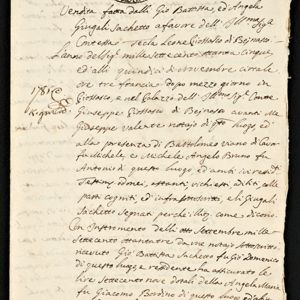 Vendita fatta dalli Gio Battista, ed Angela
Giugali Sachetto a favore dell' Ill.ma Sig.ra
Contessa Tecla Leone Piossasco di Beinasco
L'anno del Sig.e mille settecento ottanta cinque
ed alli quindici di novembre circa le
ore tre francia dopo mezzo giorno in
Piossasco, e nel Palazzo dell' Ill.mo Sig.r Conte
Giuseppe Piossasco di Beinasco avanti Me
Giuseppe Valente notajo di questo luogo ed
alla presenza di Bartolomeo Viano di Cavo
fu Michele, e Michele Angelo Bruno fu
Antonio di questo luogo, ed ambi ivi resid.ti
Testimonj idonei, astanti, richiesti, ed alle
parti cogniti, ed infrascritti, gli Giugali
Sachetto segnati perche illet.i come dicono
Con Instromento delli otto Settembre mille
settecento ottantatre da me notajo sottoscritto
ricevuto Gio Battista Sachetto fu Gio Domenico
di questo luogo, e residente ha assicurato le
lire settecento nove dotali della Angela Maria
fu Giacomo Bordino di questo luogo ed